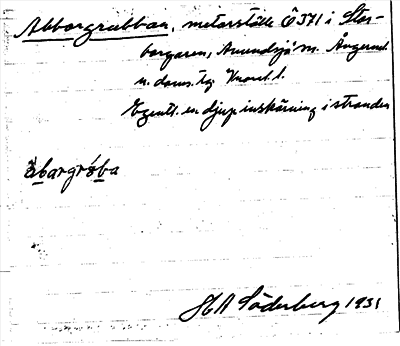 Abborgrubban, metarställe Ö 371 i Stor-
borgaren, Anundsjö sn. Ångerml.
n. doms. tg
Egentl. en djup inskärning i stranden
åbargrôba
HA Söderberg 1931